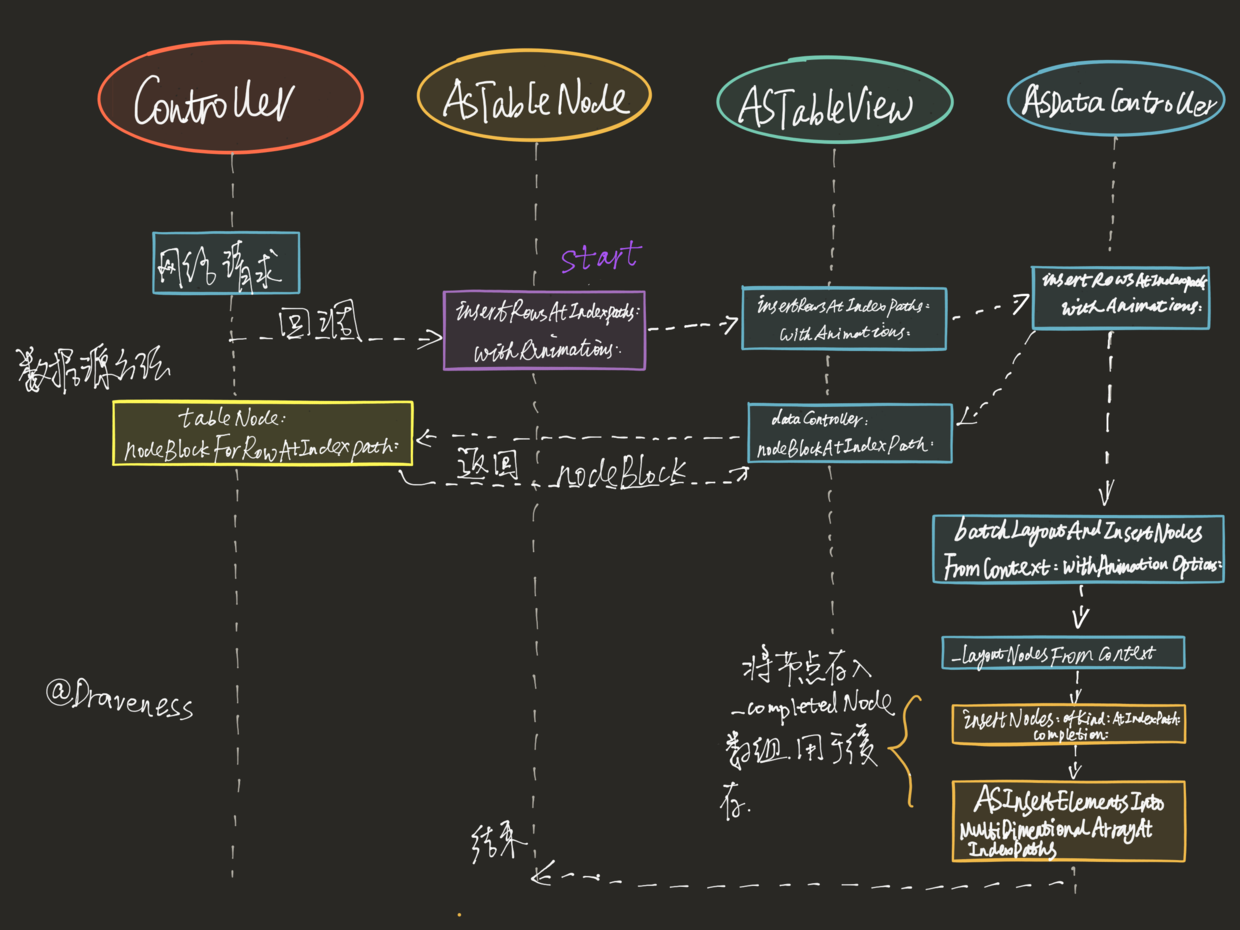 Controller
ASTableNode
ASTableView
ASDataController
网络请求
start
回调
insertRowsAtIndexpaths:
withAnimations:
insertRowsAtIndexPaths:
withAnimations:
insertRowsAtIndexpaths
withAnimations:
数据源
tableNode:
nodeBlockForRowAtIndexpath:
返回 nodeBlock
dataController:
nodeBlockAtIndexPath:
batchLayoutAndInsertNodes
FromContext:withAnimationOptions:
_layoutNodesFromContext
insertNodes:ofKind:AtIndexPath:
completion:
ASInsertElementsInto
MultiDimentionalArrayAt
IndexPaths
将节点存入
_completedNode
数组.用于缓
存.
结束
@Draveness